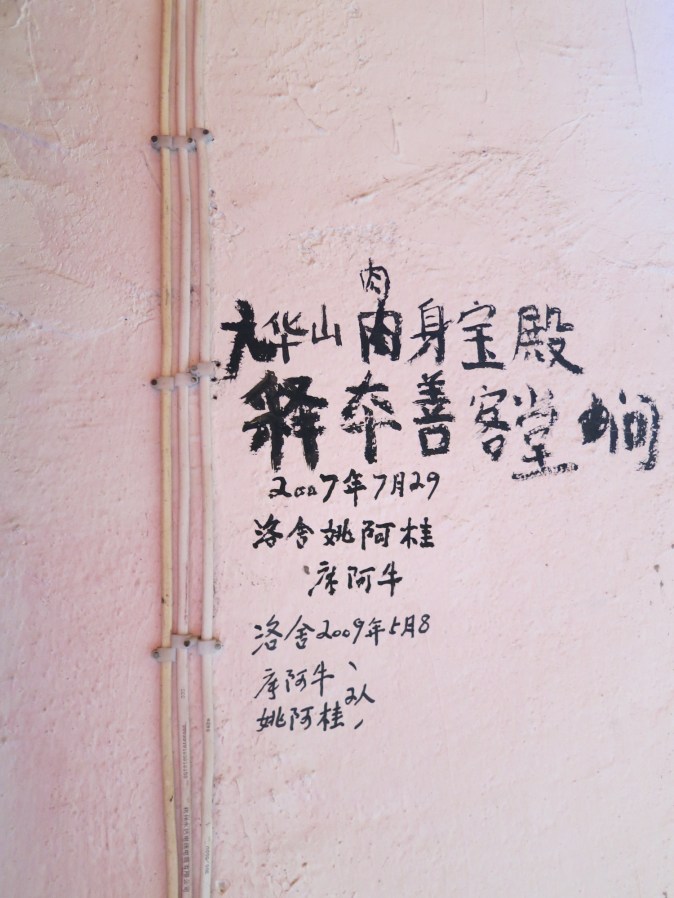 肉
九华山肉身宝殿
释本善客堂
2007年7月29
洛舍姚阿桂
阿牛
洛舍2009年5月8
阿牛、
2人
姚阿桂,